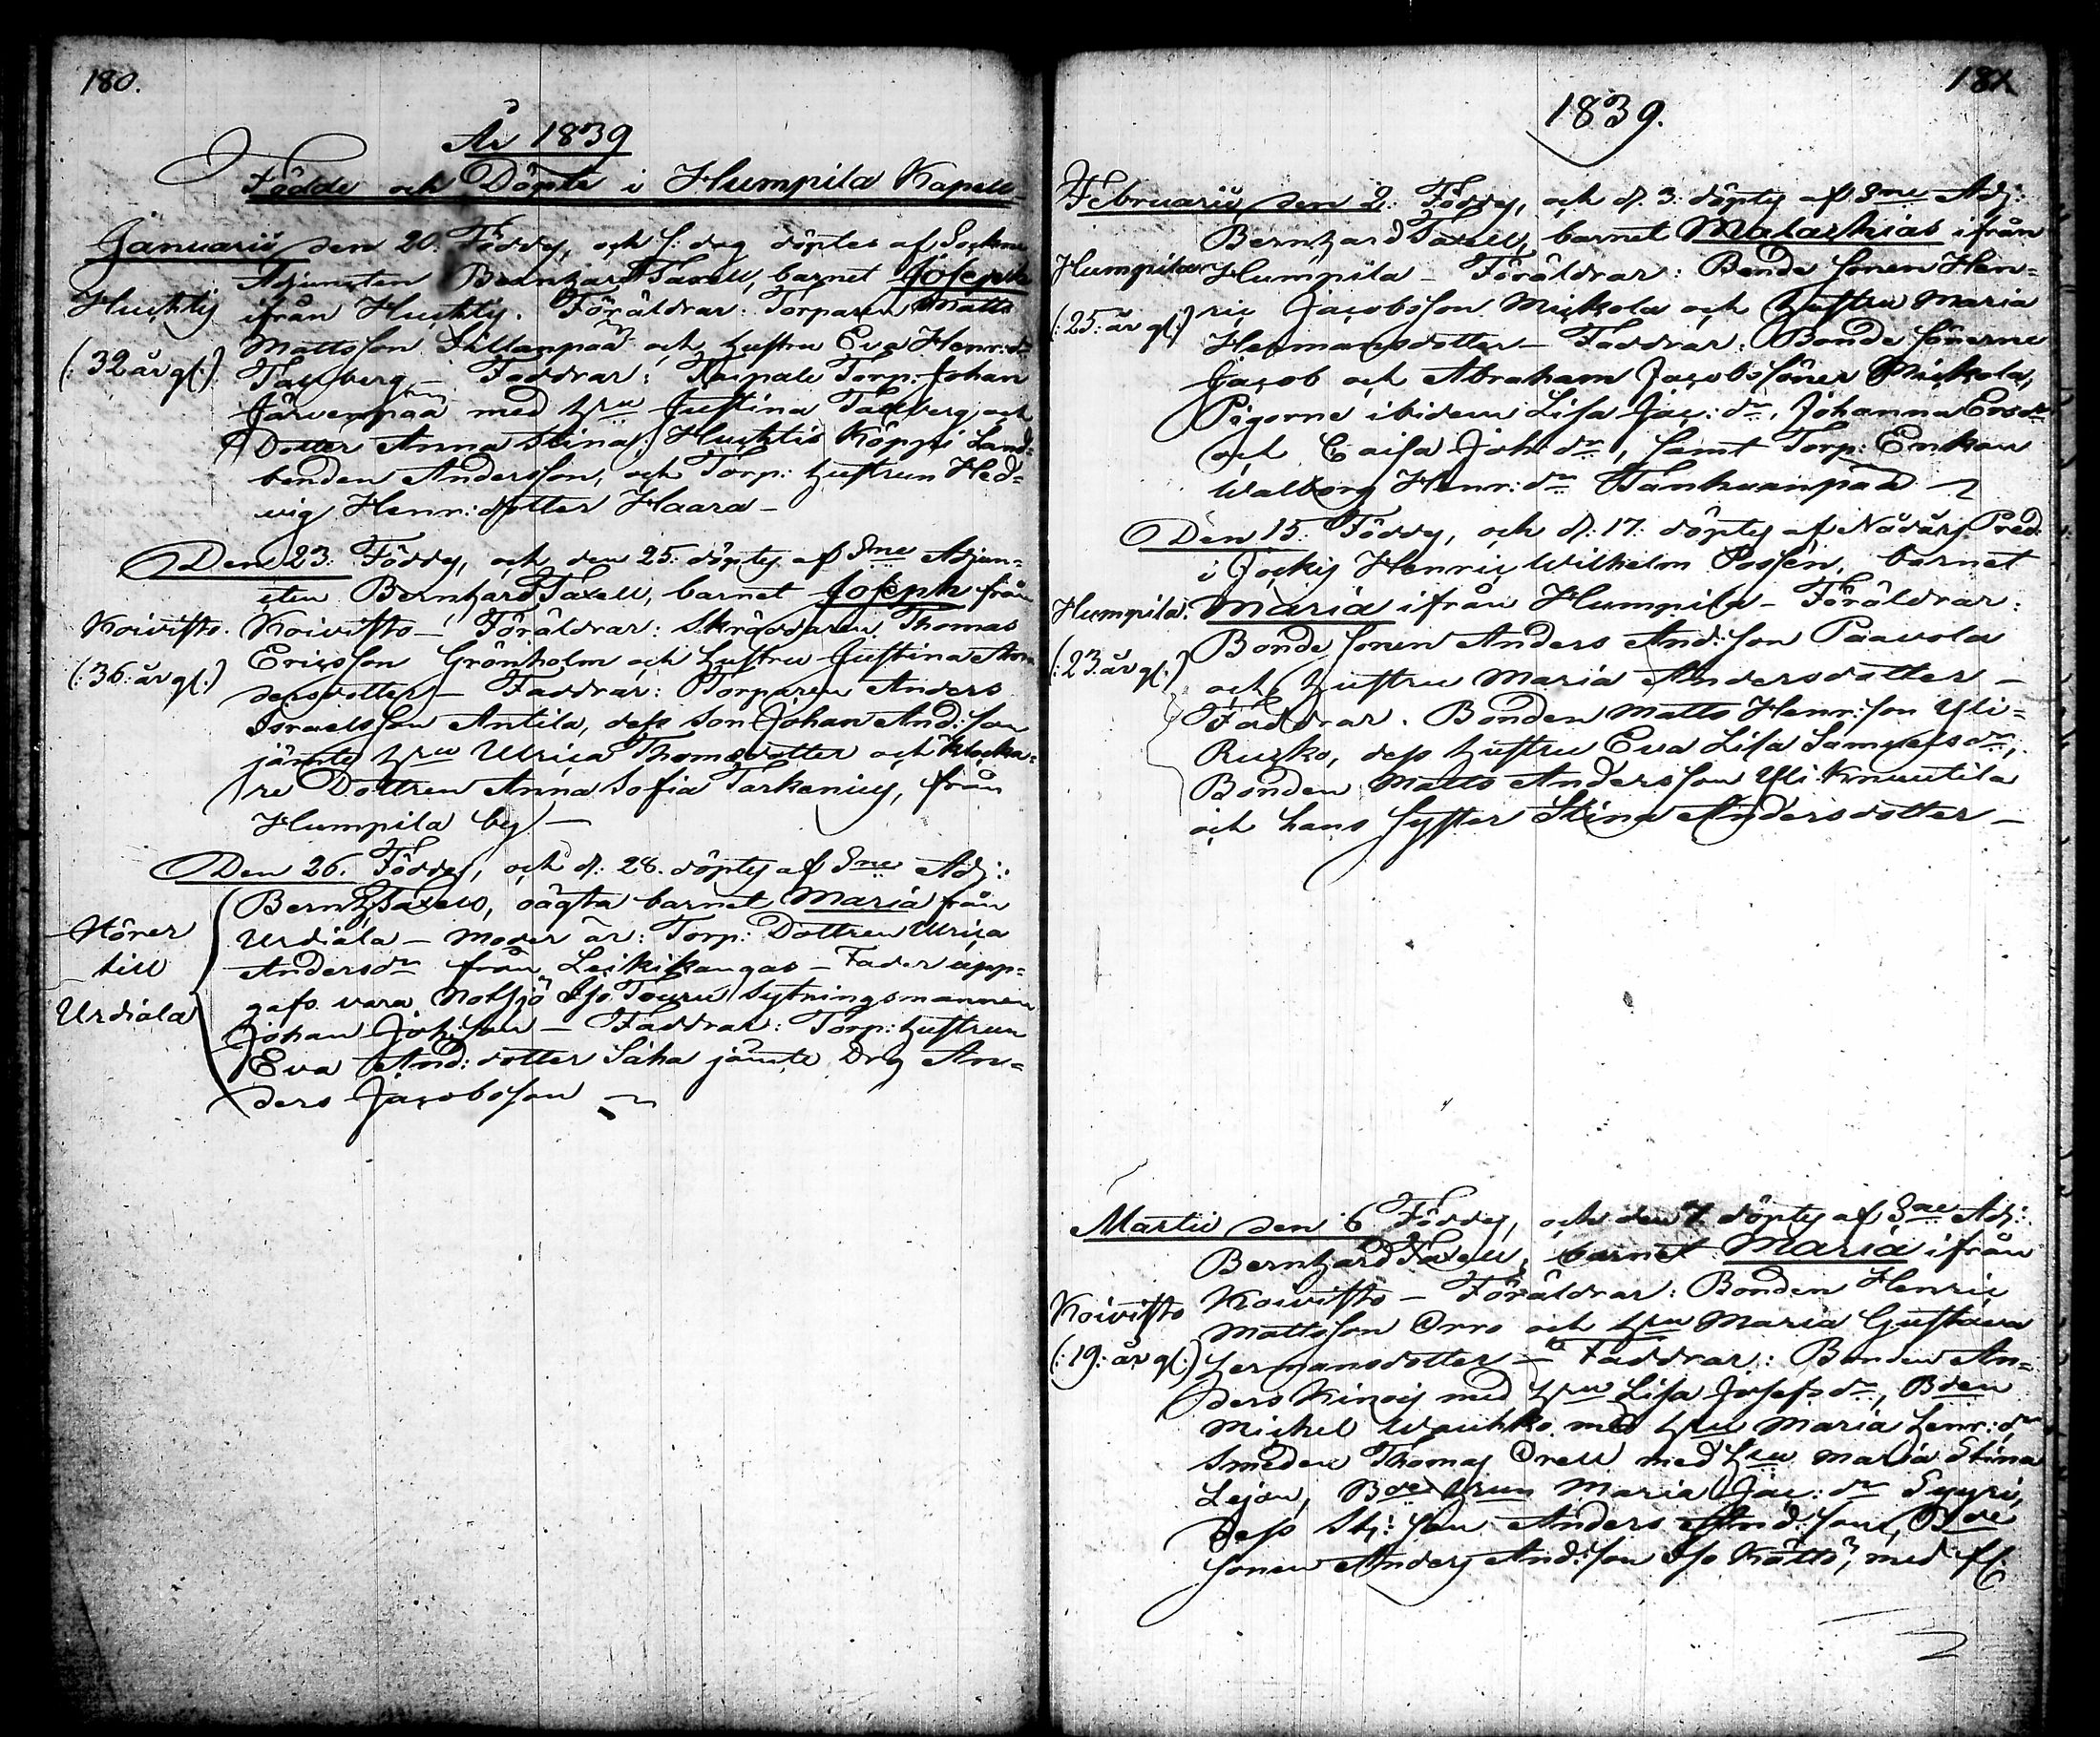 180.
År 1839
Födde och Döpte i Humpila Kapell
Januarii den 20. Föddes, och s: dag döptes af Sockne
Adjuncten Bernhard Taxell, barnet Joseph
Huhtis
ifrån Huhtis. Föräldrar: Torparen Matts
(: 32 år gl:)
Mattsson Sillanpää och hustru Eva Henr: dr
Tallberg, – Faddrar: Raipale Torp. Johan
Järvenpää med hru Justina Tallberg och
Dotter Anna Stina; Huhtis Köppi Land=
bonden Andersson, och Torp: hustrun Hed=
vig Henr: dotter Haara –
Den 23. Föddes, och den 25. döptes af Sne Adjun=
cten Bernhard Taxell, barnet Joseph från
Koivisto.
Koivisto – Föräldrar: Skräddaren Thomas
(: 36: år gl:)
Ericsson Grönholm och hustru Justina An
dersdotter – Faddrar: Torparen Anders
Israelsson Antila, dess Son Johan And: son
jämte hru Ulrica Thomsdotter och klocka=
re Dottren Anna Sofia Tarkenius, från
Humpila by –
Den 26. Föddes, och d: 28. döptes af Sne Adj:
Bernh Taxell, oägta barnet Maria från
Hörer
Urdiala – Moder är: Torp: Dottren Ulrica
till
Andersdr från Leikikangas – Fader upp=
Urdiala
gafs vara Notsjö Iso Touru Sytningsmannen
Johan Joh: son – Faddrar: Torp: hustrun
Eva And: dotter Saha jämte Drg An=
ders Jacobsson
181
1839.
Februarii den 2. Föddes, och d. 3. döptes af Sne Adj:
Bernhard Taxell, barnet Malachias ifrån
Humpila
Humpila – Föräldrar: Bonde Sonen Hen=
(: 25: år gl:)
ric Jacobsson Mickola och hustru Maria
Hermansdotter – Faddrar: Bonde Sönerne
Jacob och Abraham Jacobs Söner Mickola,
Pigorne ibidem Lisa Jac: dr, Johanna Ersdr
och Caisa Joh dr, samt Torp: Enkan
Walborg Henr: dr Tanhuanpää
Den 15. Föddes, och d: 17: döptes af Nådårs Pred:
i Jockis Henric Wilhelm Possén, barnet
Humpila.
Maria ifrån Humpila – Föräldrar:
(: 23 år gl:)
Bonde Sonen Anders And: son Paavola
och hustru Maria Andersdotter –
Faddrar. Bonden Matts Henr: son Yli=
Rusko, dess hustru Eva Lisa Samuelsdr,
Bonden Matts Andersson Yli Knuutila
och hans Syster Stina Andersdotter –
Martii den 6 Föddes, och den 7. döptes af Sne Adj:
Bernhard Taxell, barnet Maria ifrån
Koivisto
Koivisto – Föräldrar: Bonden Henric
Mattsson Orro och hru Maria Gustava
(: 19: år gl:)
Hermansdotter – Faddrar: Bonden An=
ders Kinois med hru Lisa Josefsdr, Bden
Michel Wauhko med hru Maria Henr: dr
Smeden Thomas Orell med hru Maria Stina
Lejon, Bde hrun Maria Jac: dr Eyyri,
dess Stj: son Anders And: son, Bde
Sonen Anders And: son Iso Kättö, med fl.